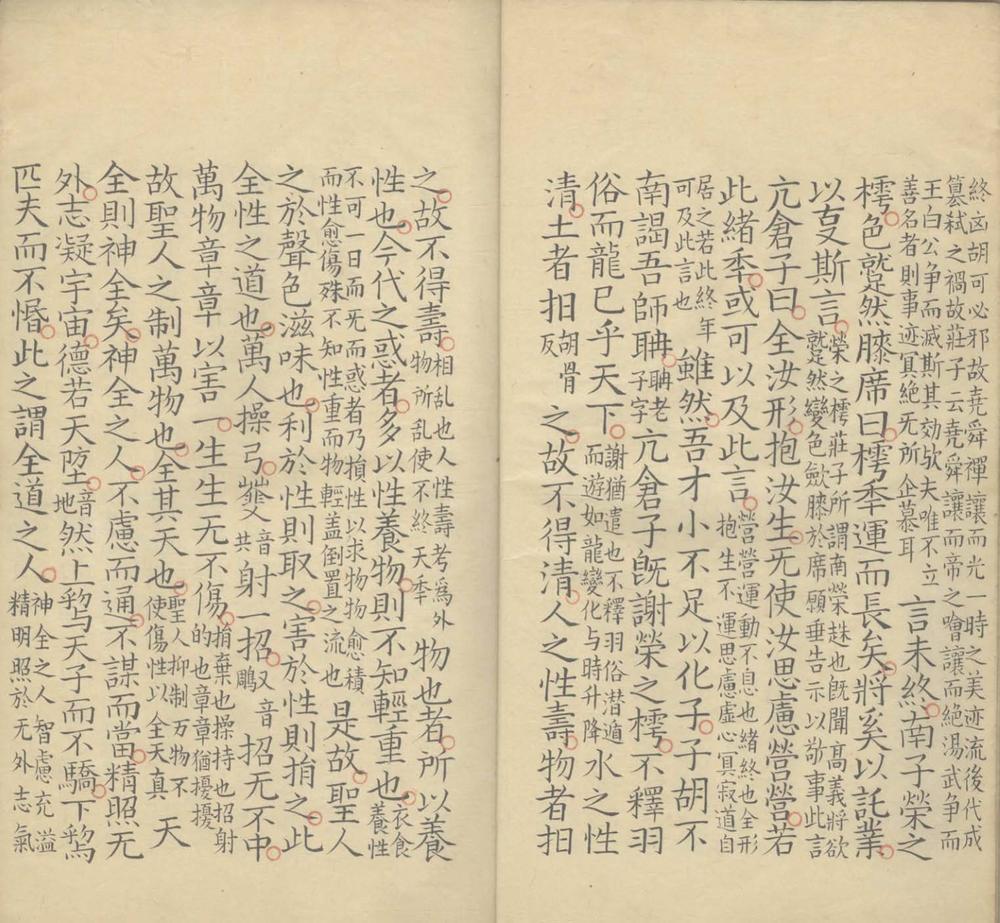 終凶胡可必邪故堯舜禪讓而光一時之美迹流後代成
篡弑之禍故莊子云堯舜讓而帝之噲讓而絕湯武爭而
王白公爭而滅斯其効歟夫唯不立
善名者則事迹冥絕无所企慕耳
言未終南子榮之
樗色蹵然膝席曰樗秊運而長矣將奚以託業
以叓斯言
榮之樗莊子所謂南榮趎也旣聞髙義將欲
蹵然變色歛膝於席願垂告示以敬事此言
亢倉子曰全汝形抱汝生无使汝思慮營營若
此緒秊或可以及此言
營營運動不息也緒終也全形
抱生不運思慮虛心冥寂道自
居之若此終年
可及此言也
雖然吾才小不足以化子子胡不
南謁吾師聃
聃老
子字
亢倉子旣謝榮之樗不釋羽
俗而龍巳乎天下
謝猶遣也不釋羽俗潛遁
而遊如龍變化与時升降
水之性
清土者抇
胡骨
反
之故不得清人之性壽物者抇
之故不得壽
相乱也人性壽考爲外
物所乱使不終天秊
物也者所以養
性也今代之惑者多以性養物則不知輕重也
衣食
養性
不可一日而无而惑者乃損性以求物物愈積
而性愈傷殊不知性重而物輕盖倒置之流也
是故聖人
之於聲色滋味也利於性則取之害於性則捐之此
全性之道也萬人操弓
音
共
射一招
音
又鵰
招无不中
萬物章章以害一生生无不傷
捐棄也操持也招射
的也章章猶擾擾
故聖人之制萬物也全其天也
聖人抑制万物不
使傷性以全天真
天
全則神全矣神全之人不慮而通不謀而當精照无
外志凝宇宙德若天墬
音
地
然上爲天子而不驕下爲
匹夫而不惛此之謂全道之人
神全之人智慮充溢
精明照於无外志氣